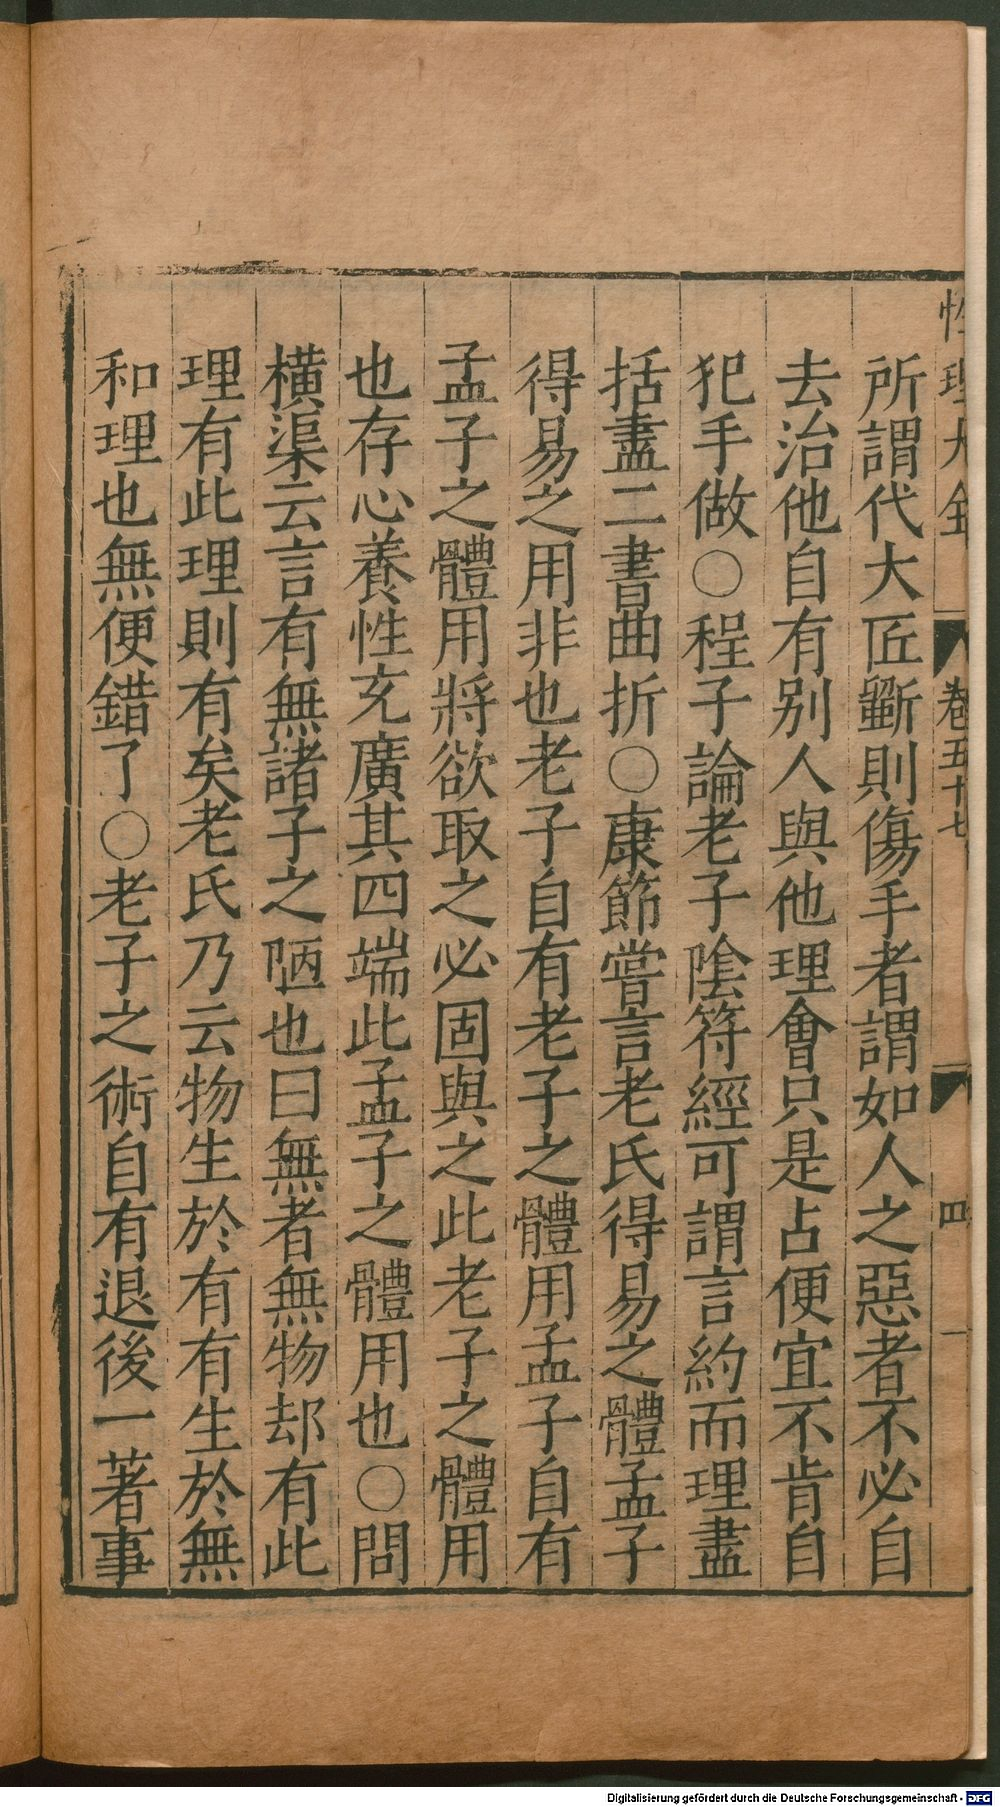 性理大全 卷五十七 四
所謂代大匠斵則傷手者謂如人之惡者不必自
去治他自有别人與他理會只是占便宜不肯自
犯手做○程子論老子隂符經可謂言約而理盡
括盡二書曲折○康節嘗言老氏得易之體孟子
得易之用非也老子自有老子之體用孟子自有
孟子之體用將欲取之必固與之此老子之體用
也存心養性充廣其四端此孟子之體用也○問
橫渠云言有無諸子之陋也曰無者無物却有此
理有此理則有矣老氏乃云物生於有有生於無
和理也無便錯了○老子之術自有退後一著事
Digitalisierung gefördert durch die Deutsche Forschungsgemeinschaft - DFG